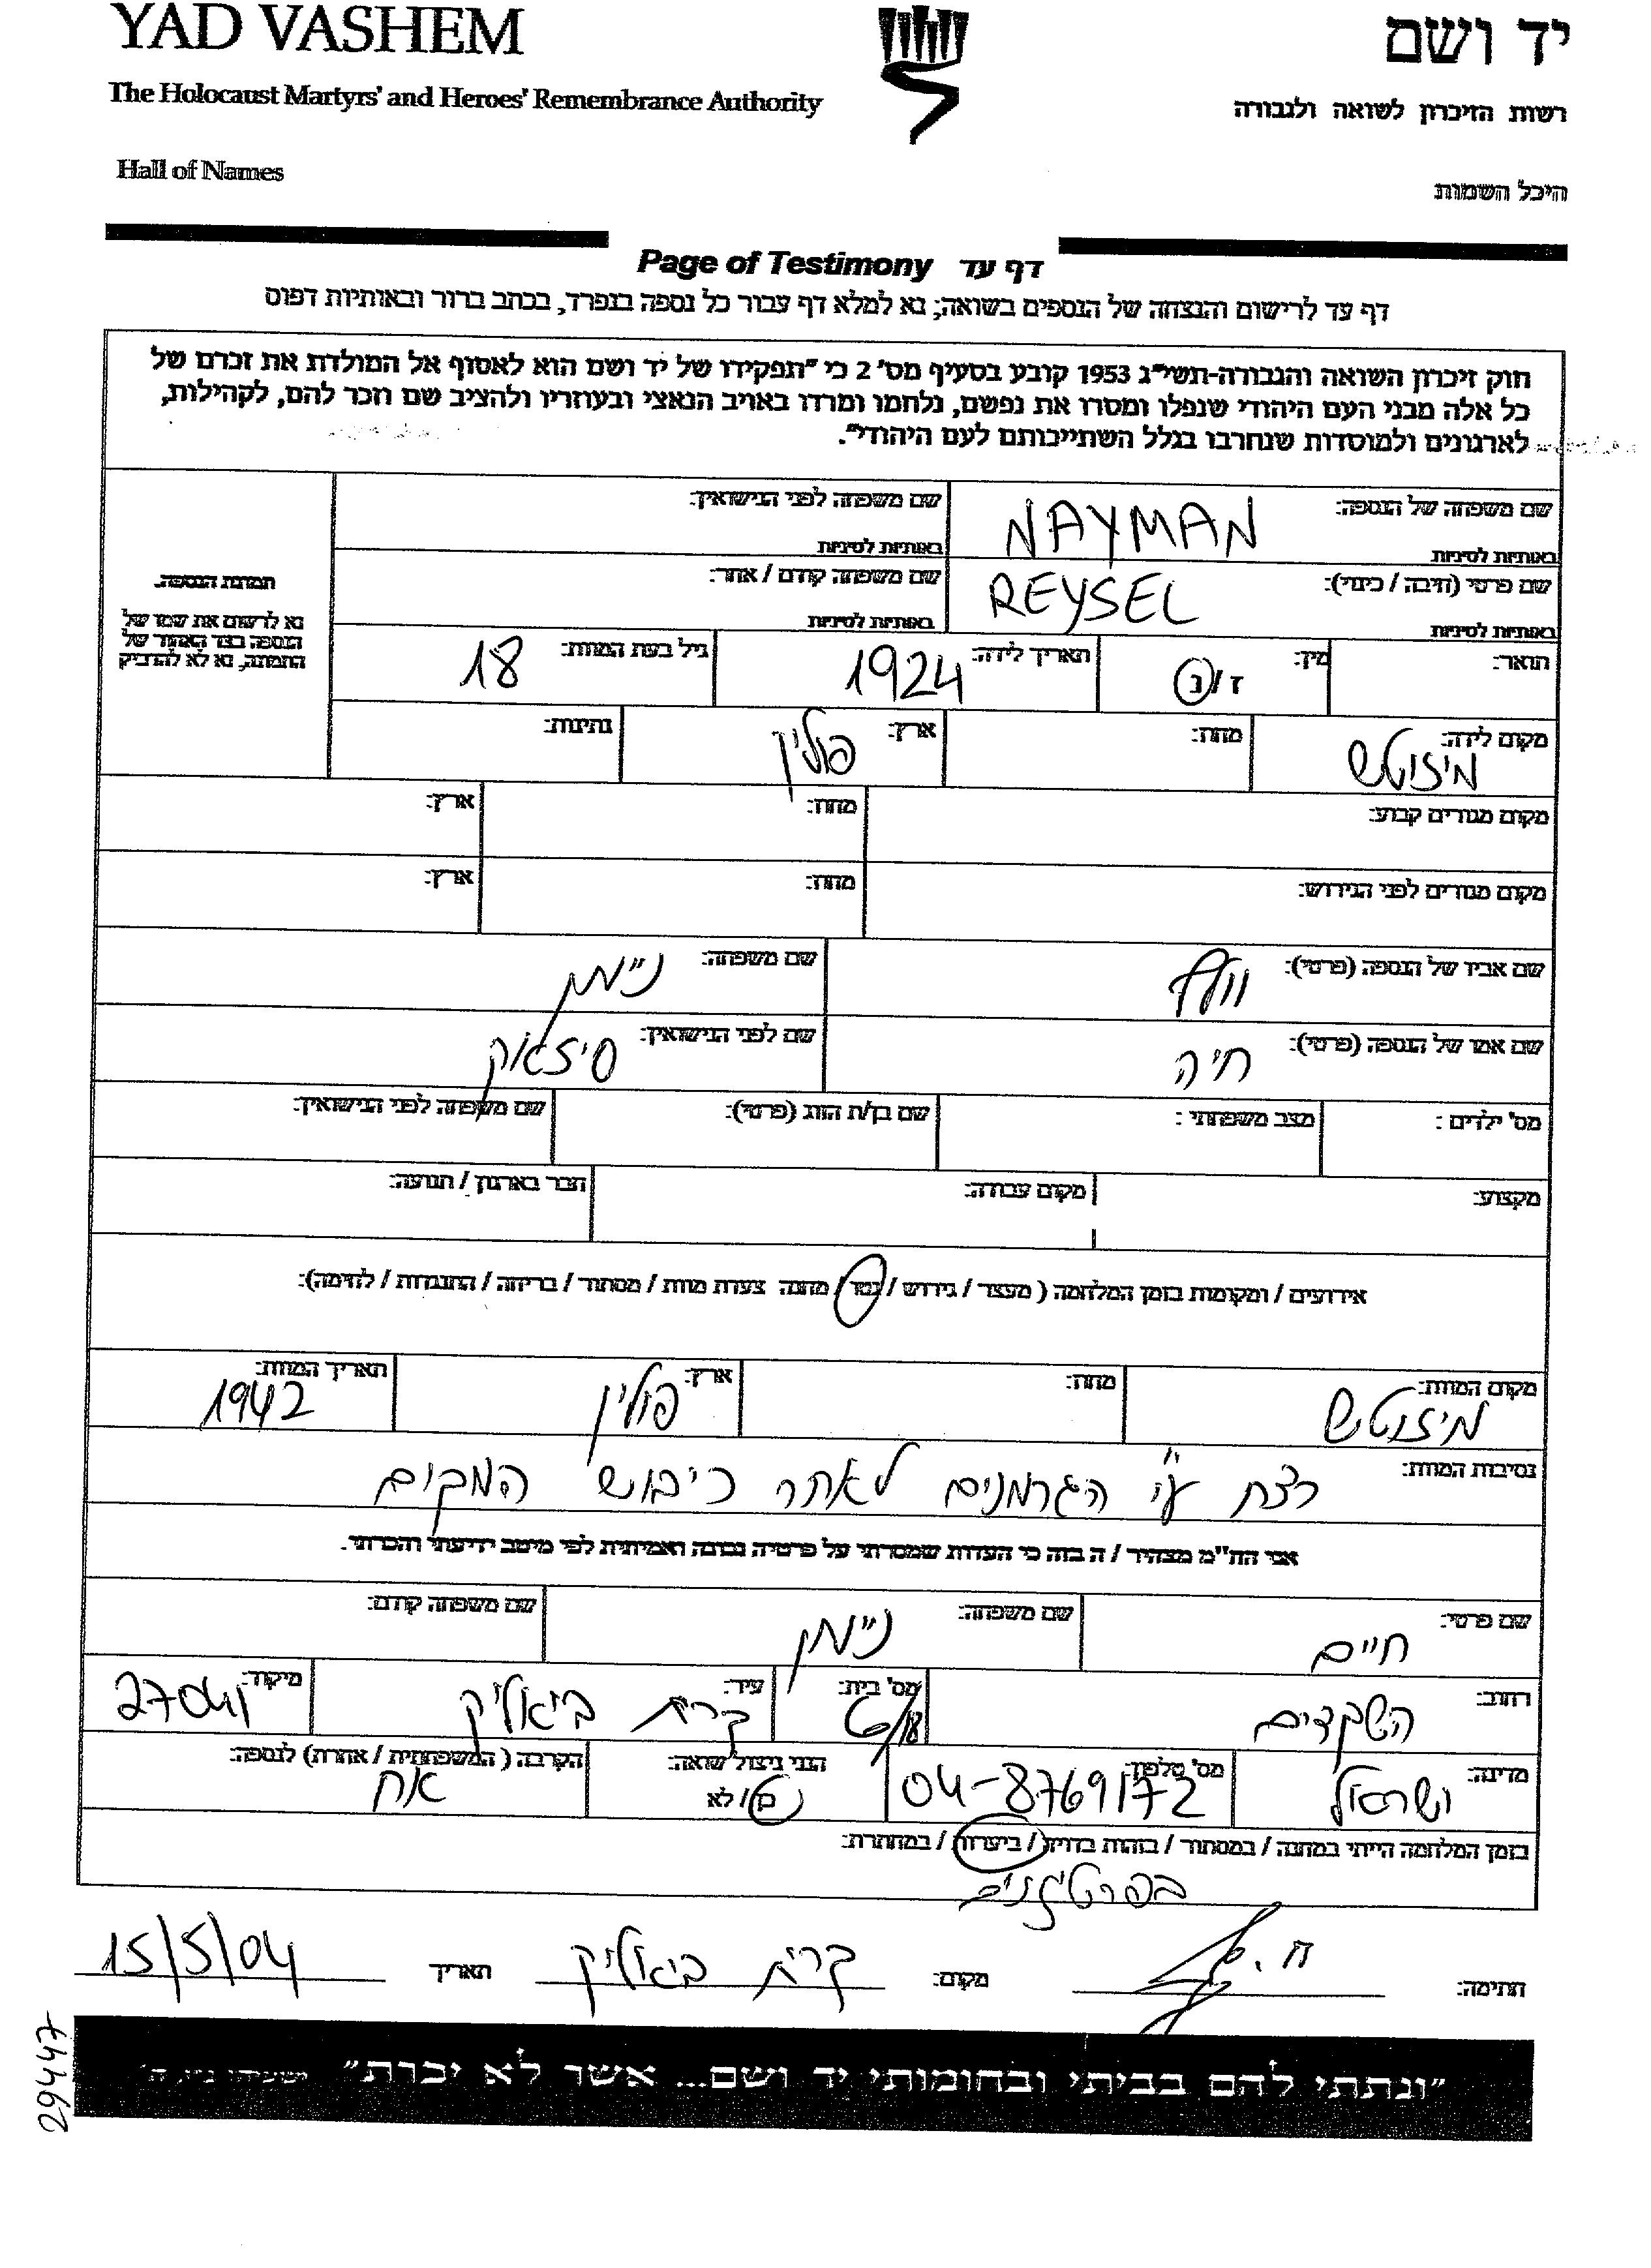 YAD VASHEM
יד ושם
The Holocaust Martyrs' and Heroes' Remembrance Authority
רשות הזיכרון לשואה ולגבורה
Hall of Names
היכל השמות
Page of Testimony דף עד
דף עד לרישום והנצחה של הנספים בשואה; נא למלא דף עבור כל נספה בנפרד, בכתב ברור ובאותיות דפוס
חוק זיכרון השואה והגבורה-תשי"ג 1953 קובע בסעיף מס' 2 כי "תפקידו של יד ושם הוא לאסוף אל המולדת את זכרם של
כל אלה מבני העם היהודי שנפלו ומסרו את נפשם, נלחמו ומרדו באויב הנאצי ובעוזריו ולהציב שם וזכר להם, לקהילות,
לארגונים ולמוסדות שנחרבו בגלל השתייכותם לעם היהודי".
שם משפחה של הנספה: NAYMAN שם משפחה לפני הנישואין:
באותיות לטיניות באותיות לטיניות
שם פרטי (חיבה / כינוי): REYSEL שם משפחה קודם / אחר:
באותיות לטיניות באותיות לטיניות
תמונת הנספה.
נא לרשום את שמו של
הנספה בצד האחור של
התמונה, נא לא להדביק
תואר: מין: ז / נ תאריך לידה: 1924 גיל בעת המוות: 18
מקום לידה: מיזוטש מחוז: ארץ: פולין נתינות:
מקום מגורים קבוע: מחוז: ארץ:
מקום מגורים לפני הגירוש: מחוז: ארץ:
שם אביו של הנספה (פרטי): וולף שם משפחה: ניימן
שם אמו של הנספה (פרטי): חיה שם לפני הנישואין: סיזאק
מס' ילדים : מצב משפחתי : שם בן/ת הזוג (פרטי): שם משפחה לפני הנישואין:
מקצוע: מקום עבודה: חבר בארגון / תנועה:
אירועים / ומקומות בזמן המלחמה ( מעצר / גירוש / גטו / מחנה צעדת מוות / מסתור / בריחה / התנגדות / לחימה):
מקום המוות: מיזוטש מחוז: ארץ: פולין תאריך המוות: 1942
נסיבות המוות: רצח ע"י הגרמנים לאחר כיבוש המקום
אני הח"מ מצהיר / ה בזה כי העדות שמסרתי על פרטיה נכונה ואמיתית לפי מיטב ידיעתי והכרתי.
שם פרטי: חיים שם משפחה: ניימן שם משפחה קודם:
רחוב: השקדים מס' בית: 6/18 עיר: קרית ביאליק מיקוד: 27041
מדינה: ישראל מס' טלפון: 04-8769172 הנני ניצול שואה: כן / לא הקרבה ( המשפחתית / אחרת) לנספה: אח
בזמן המלחמה הייתי במחנה / במסתור / בזהות בדויה / ביערות / במחתרת:
בפרטיזנים
חתימה: מקום: קרית ביאליק תאריך 15/5/04
"ונתתי להם בביתי ובחומותי יד ושם... אשר לא יכרת"